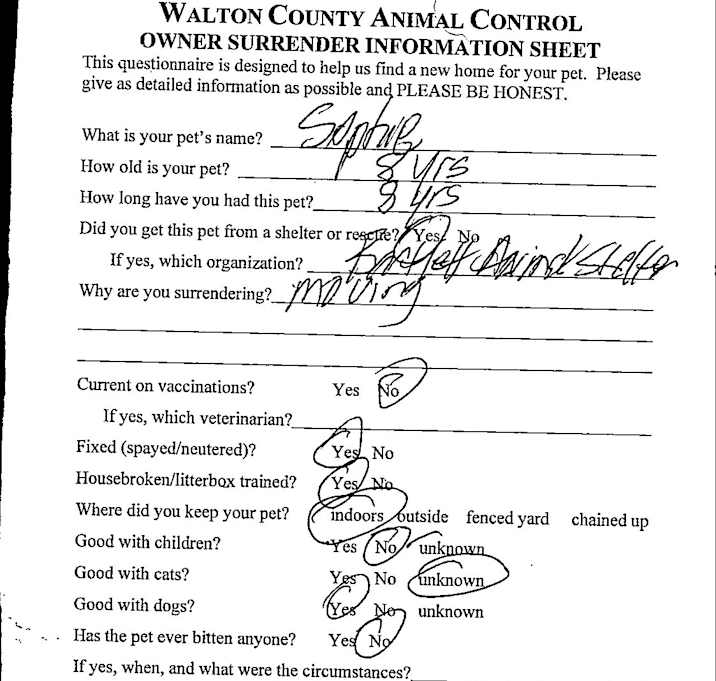 WALTON COUNTY ANIMAL CONTROL
OWNER SURRENDER INFORMATION SHEET
This questionnaire is designed to help us find a new home for your pet. Please
give as detailed information as possible and PLEASE BE HONEST.
What is your pet's name? Sophie
How old is your pet? 8 yrs
How long have you had this pet? 8 yrs
Did you get this pet from a shelter or rescue? Yes No
If yes, which organization? Animal Shelter
Why are you surrendering? moving
Current on vaccinations? Yes No
If yes, which veterinarian?
Fixed (spayed/neutered)? Yes No
Housebroken/litterbox trained? Yes No
Where did you keep your pet? indoors outside fenced yard chained up
Good with children? Yes No unknown
Good with cats? Yes No unknown
Good with dogs? Yes No unknown
Has the pet ever bitten anyone? Yes No
If yes, when, and what were the circumstances?